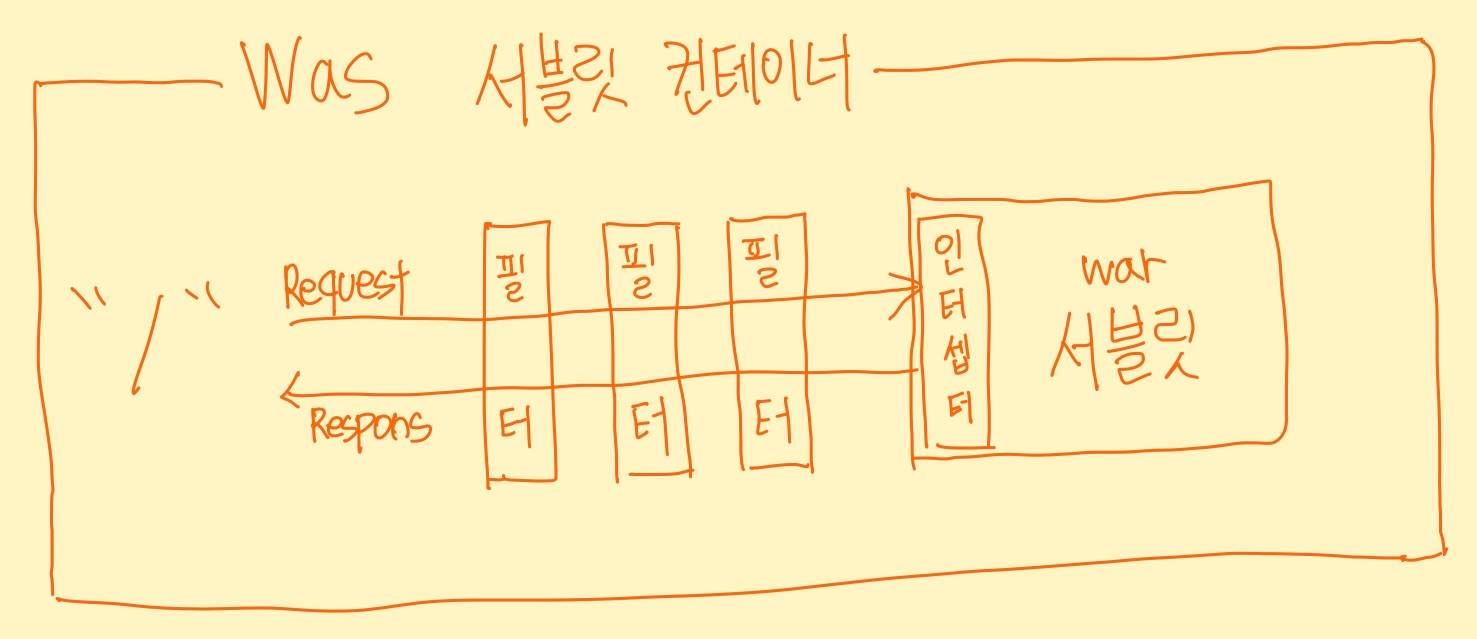 Was 서블릿 컨테이너
"/"
Request
Respons
필터
필터
필터
인터셉터
war
서블릿